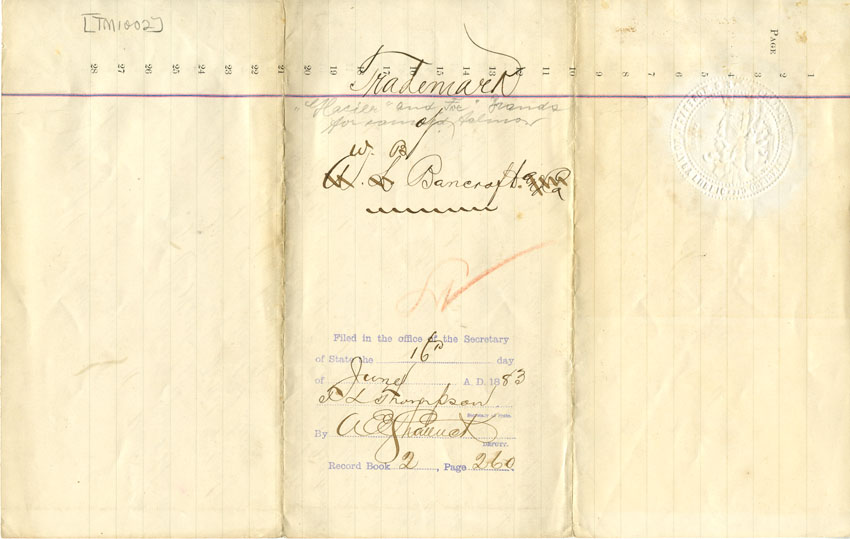 [TM1002]
PAGE
28 27 26 25 24 23 22 21 20 19 18 17 16 15 14 13 12 11 10 9 8 7 6 5 4 3 2 1
Trademark
"Glacier" and "Ice" brands
for canned salmon
of
W. B.
Bancroft
Filed in the office of the Secretary
of State the 16th day
of June A. D. 1883
T L Thompson
Secretary of State.
By A E Shattuck
DEPUTY.
Record Book 2, Page 260